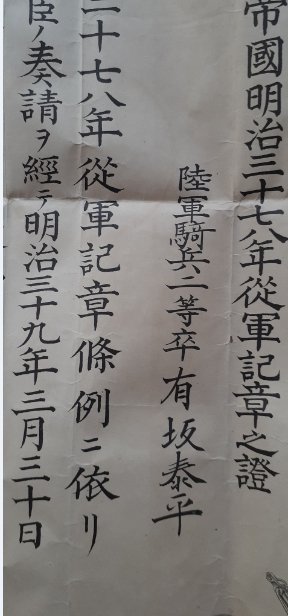 帝國明治三十七八年從軍記章之證
陸軍騎兵二等卒有坂泰平
三十七八年從軍記章條例ニ依リ
臣ノ奏請ヲ經テ明治三十九年三月三十日